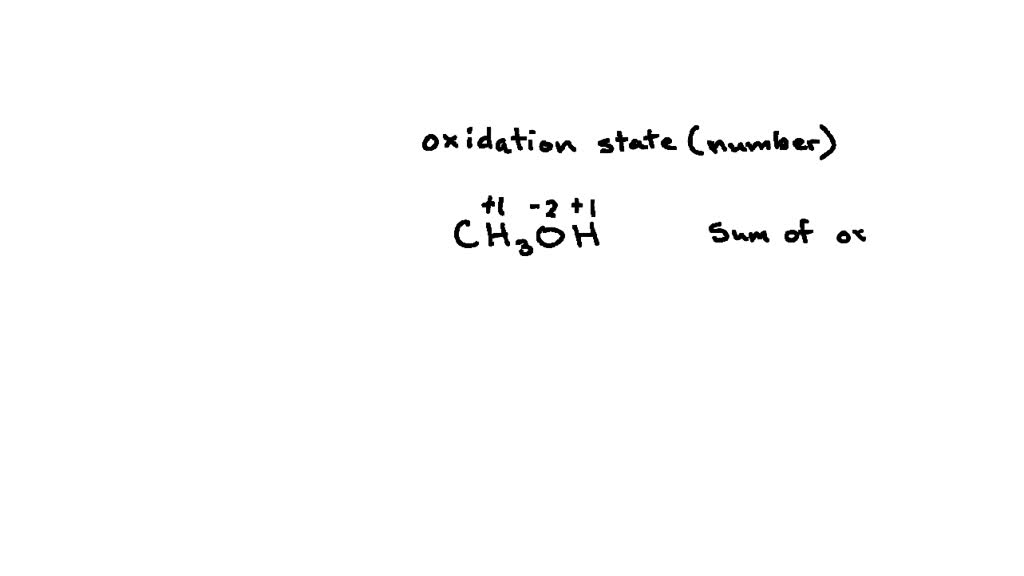 oxidation state (number)
+1 -2 +1
CH₃OH Sum of ox